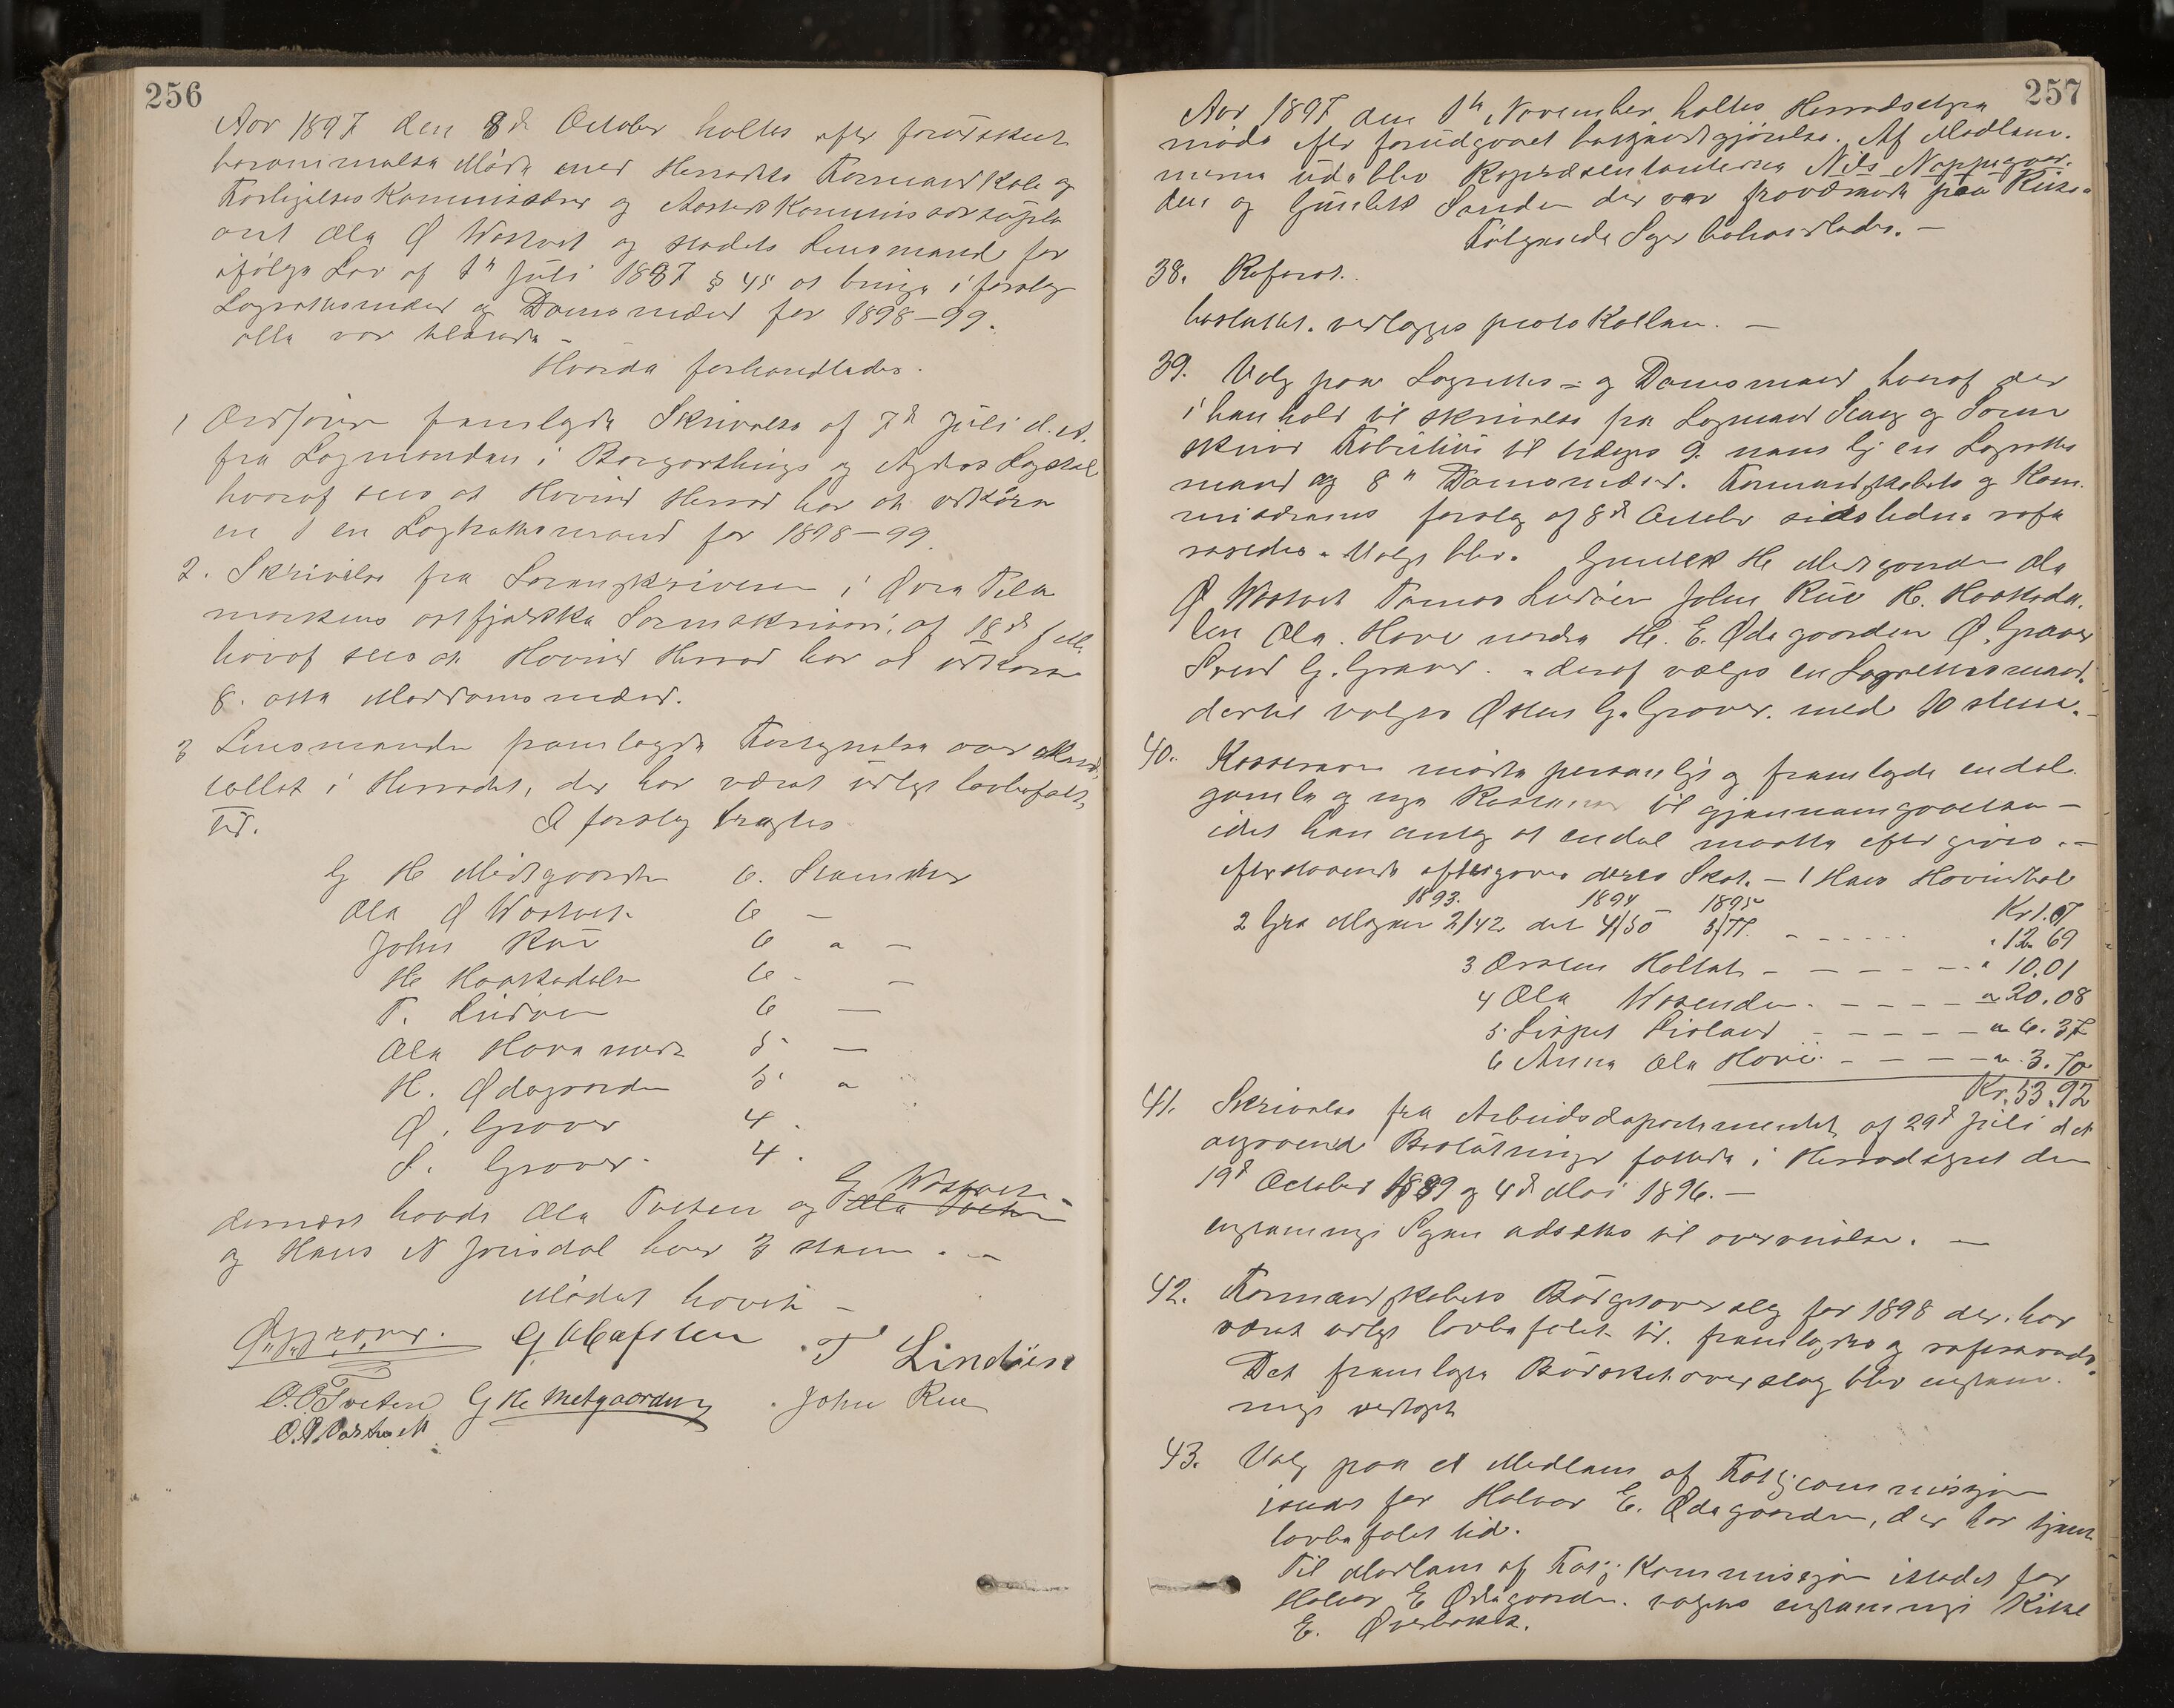 256
Aar 1897 den 8de October holtes efter forudskeet
berammelse Møde med Herredets Formandskab og
Forligelses Kommissærer og
ant Ola Ø Wastveit og stedets Lensmand for
ifølge Lov af 1ste Juli 1887 § 45 at bringe i forslag
Lagrettesmænd og Domsmænd for 1898–99.
alle var tilstede
Hvorda forhandledes.
1 Ordføren fremlagde Skrivelse af 7de Juli d. A.
fra Lagmanden i Borgarthings og Agders Lagstol
hvoraf sees at Hovind Herred har at udkåre
en 1 en Lagrettesmand for 1898–99.
2. Skrivelse fra Sorenskriveren i Øvre Tele
markens østfjelske Sorenskriveri, af 18de f. M.
hvoraf sees at Hovind Herred har at udkåre
8. otte Meddomsmænd.
3 Lensmanden fremlagde Fortegnelse over Mand
tallet i Herredet, der har været udlagt lovbefalet
tid. I forslag bragtes
G H Midtgaarden 6. Stemmer
Ola Ø Wastveit 6 –
John Rue 6 " –
H Haatsdalen 6 - –
T. Lindsien 6 —
Ola Hove nordr 5 —
H. Ødegaarden 5 "
Ø. Graver 4 .
S. Graver. 4 .
G Wastveit
dernæst havde Ola Tveten og Ola Tveten
og Hans N Jønsdal hver 3 stem. —
Mødet hævet –
Ø. G. Graver. G Kaasten T Lindsien
O. O Tveten G H. Metgaarden John Rue
O. Ø. Vastveit
257
Aar 1897 den 1ste November holtes Herredstyre
møde efter forudgaaet bekjendtgjørelse. Af Medlem
merne udeblev Repræsentanterne Nils Noppegaar
den og Gunleik Sanden der var fraværende paa Reise.
Følgende Sager behandledes. —
38. Referat.
besluttet. vedlægges protokollen. —
39. Valg paa Lagrettes = og Domsmænd hvoraf der
i henhold til skrivelse fra Lagmand Scang og Soren
skriver til udtages 9. nemlig en Lagrettes
mand og 8 " Domsmænd. Formandskabets og Kom
missærernes forslag af 8de October sidstleden refe
reredes. Valgt blev. Gunleik H Medtgaarden Ola
Ø Wastveit Tomas Lindsien John Rue H. Haatsda
len Ola Hove nordre H. E. Ødegaarden Ø. Graver
Svend G. Graver. " deraf vælges en Lagrettesmand.
dertil valgtes Østen G. Graver. med 10 stem. –
40. Kassereren mødte personligt og fremlagde endel
gamle og nye Restancer til gjennemgaaelse —
idet han antog at endel maatte eftergives. –
efterstaaende eftergaves deres Skat. – 1 Hans Hovindbøl
1893. 1894 1895 Kr 1.07
2 Gro Mogen 2/42 det 4/50 5/77. - - - - " 12. 69
3 Østen Holtet – – – – – " 10.01
4 Ola Wasenden. – – – – " 20.08
5. Lisbet Lioland – – – – – " 6. 37
6 Anna Ola Hove. – – – – " 3. 70
Kr. 53.92
41. Skrivelse fra Arbeidsdepartementet af 29de Juli d A
angaaende Beslutninger fattede i Herredstyret den
19de October 1889 og 4de Mai 1896. —
enstemmig Sagen udsættes til overveielse. —
42. Formandskabets Budgetoverslag for 1898 der. har
været udlagt lovbefalet tid. fremlagdes og refereredes.
Det fremlagte Budgetoverslag blev enstem
mig vedtaget
43. Valg paa et Medlem af Forligcommissjon
istedet for Halvor E. Ødegaarden, der har tjent
lovbefalet tid.
Til Medlem af Forl. Kommissjon istedet for
Halvor E Ødegaarden. valgtes enstemmig Kittel
E. Øverbøkk.